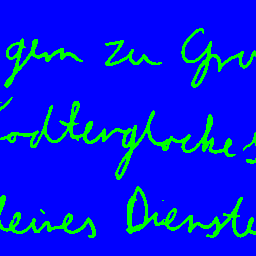 gern zu Gru
Todtenglocke s
deines Dienste